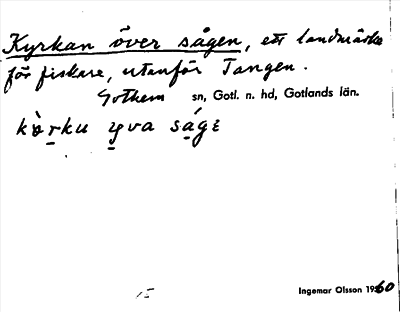 Kyrkan över sågen, ett landmärke
för fiskare, utanför Tangen.
Gothem sn, Gotl. n. hd, Gotlands län.
kò̱rku y̱va sá̱gɛ
15
Ingemar Olsson 1960